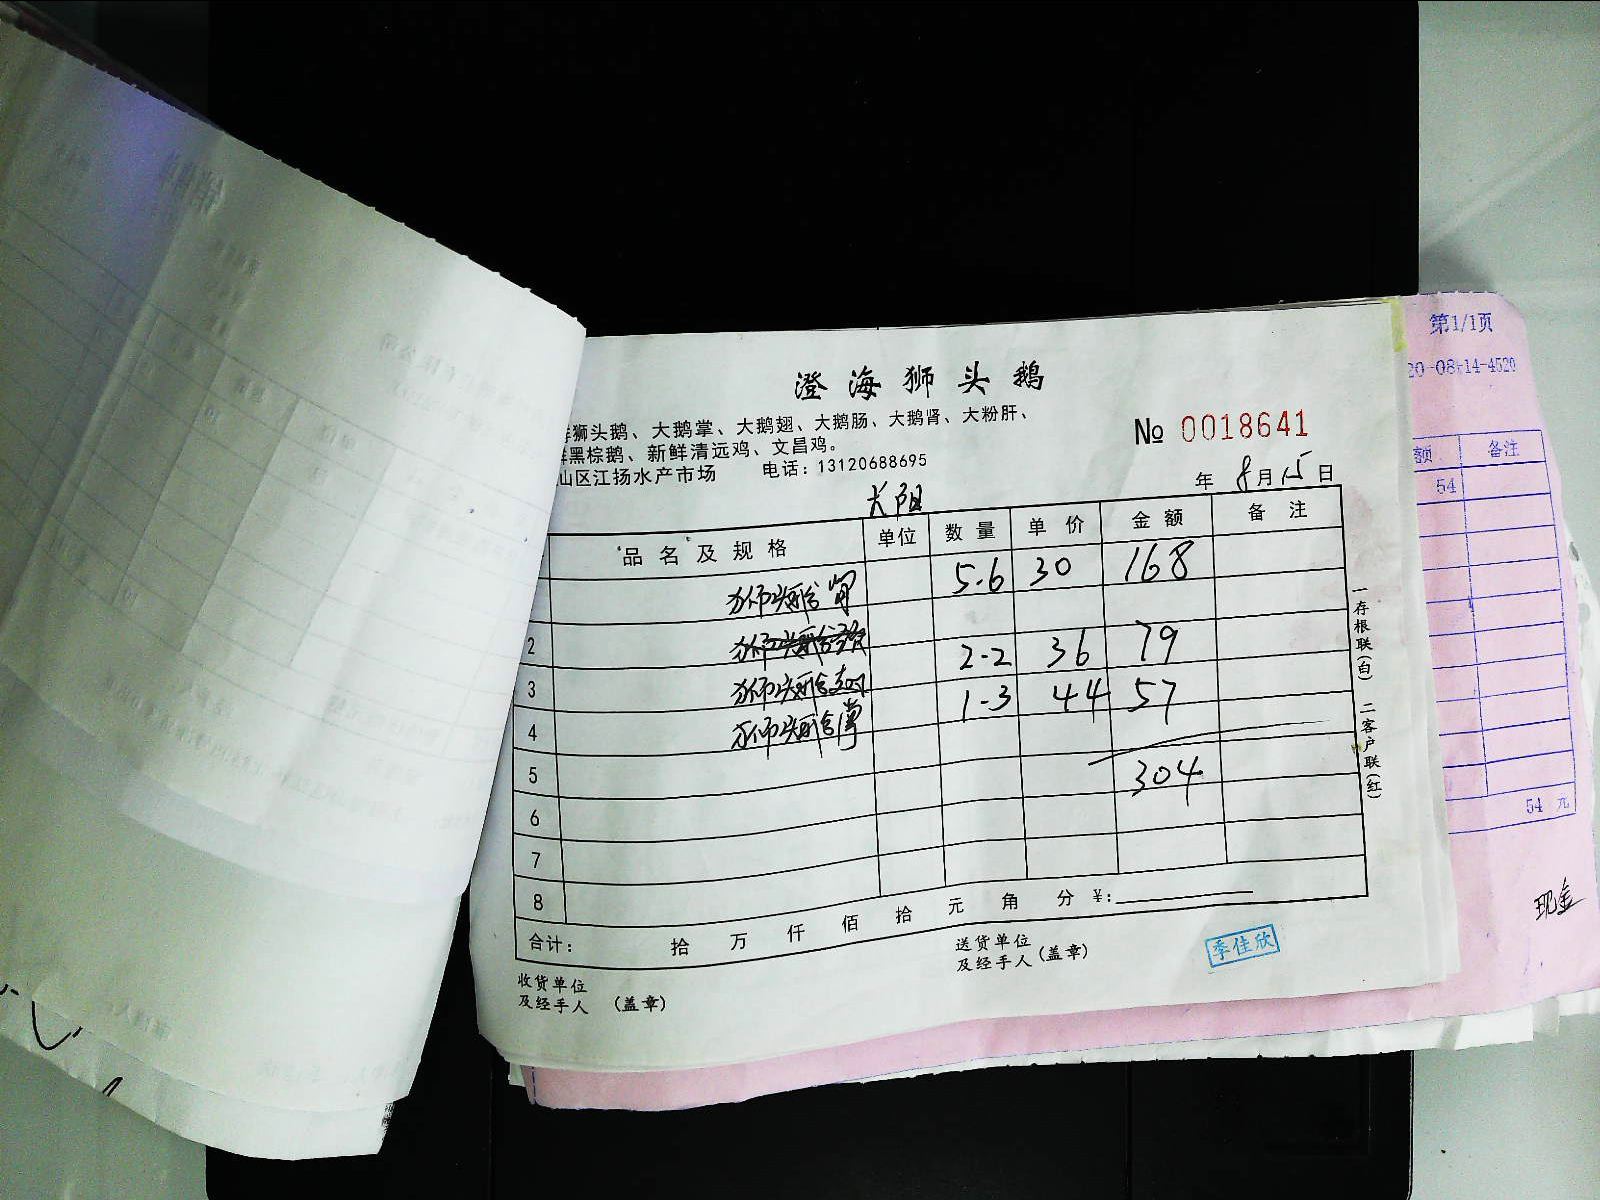 澄海狮头鹅
狮头鹅、大鹅掌、大鹅翅、大鹅肠、大鹅肾、大粉肝、
鲜黑棕鹅、新鲜清远鸡、文昌鸡。
山区江扬水产市场 电话：13120688695
№ 0018641
年 8月15日
大阳
品名及规格 单位 数量 单价 金额 备注
狮头鹅肾 5.6 30 168
2
狮头鹅 2-2 36 79
3 狮头鹅 1-3 44 57
4 狮头鹅掌
5 304
6
7
8
合计： 拾 万 仟 佰 拾 元 角 分 ¥:
收货单位
及经手人 （盖章）
送货单位
及经手人（盖章）
季佳欣
一存根联(白) 二客户联(红)
第1/1页
20-08-14-4520
额 备注
54
54 元
现金